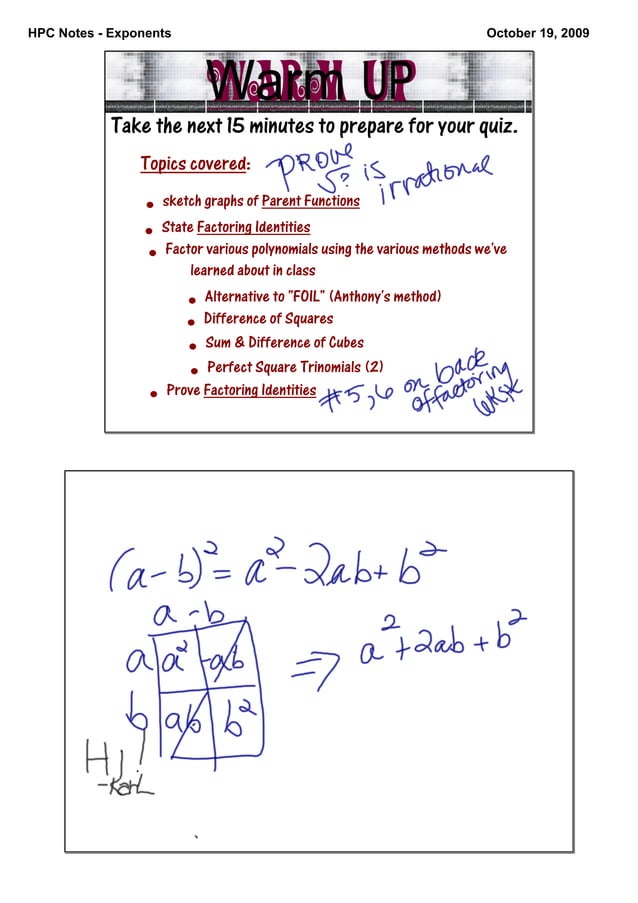 HPC Notes - Exponents
October 19, 2009
Warm UP
Take the next 15 minutes to prepare for your quiz.
Topics covered:
PROVE
√? is
irrational
• sketch graphs of Parent Functions
• State Factoring Identities
• Factor various polynomials using the various methods we've
learned about in class
• Alternative to "FOIL" (Anthony's method)
• Difference of Squares
• Sum & Difference of Cubes
• Perfect Square Trinomials (2)
• Prove Factoring Identities
#5,6 on back
of factoring
wksk
(a-b)²= a²- 2ab+ b²
a -b
a a² -ab
⇒ a²+2ab+b²
b ab b²
Hi!
-Karl